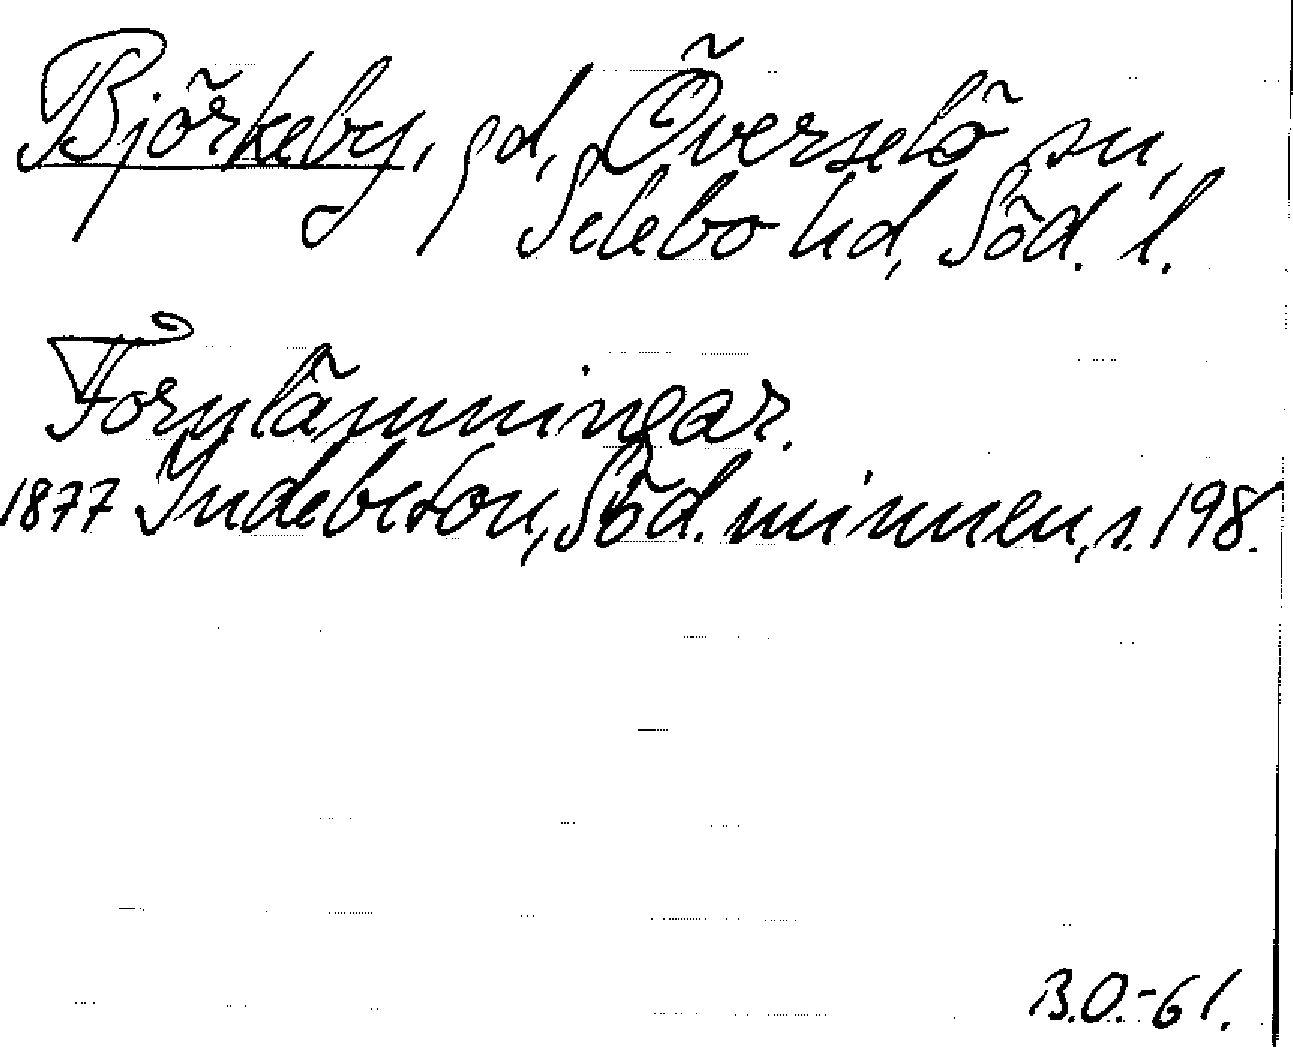 Björkeby, gd, Överselö sn,
Selebo hd, Söd. l.
Fornlämningar.
1877 Indebetou, Söd. minnen, s. 198.
B.O.-61.